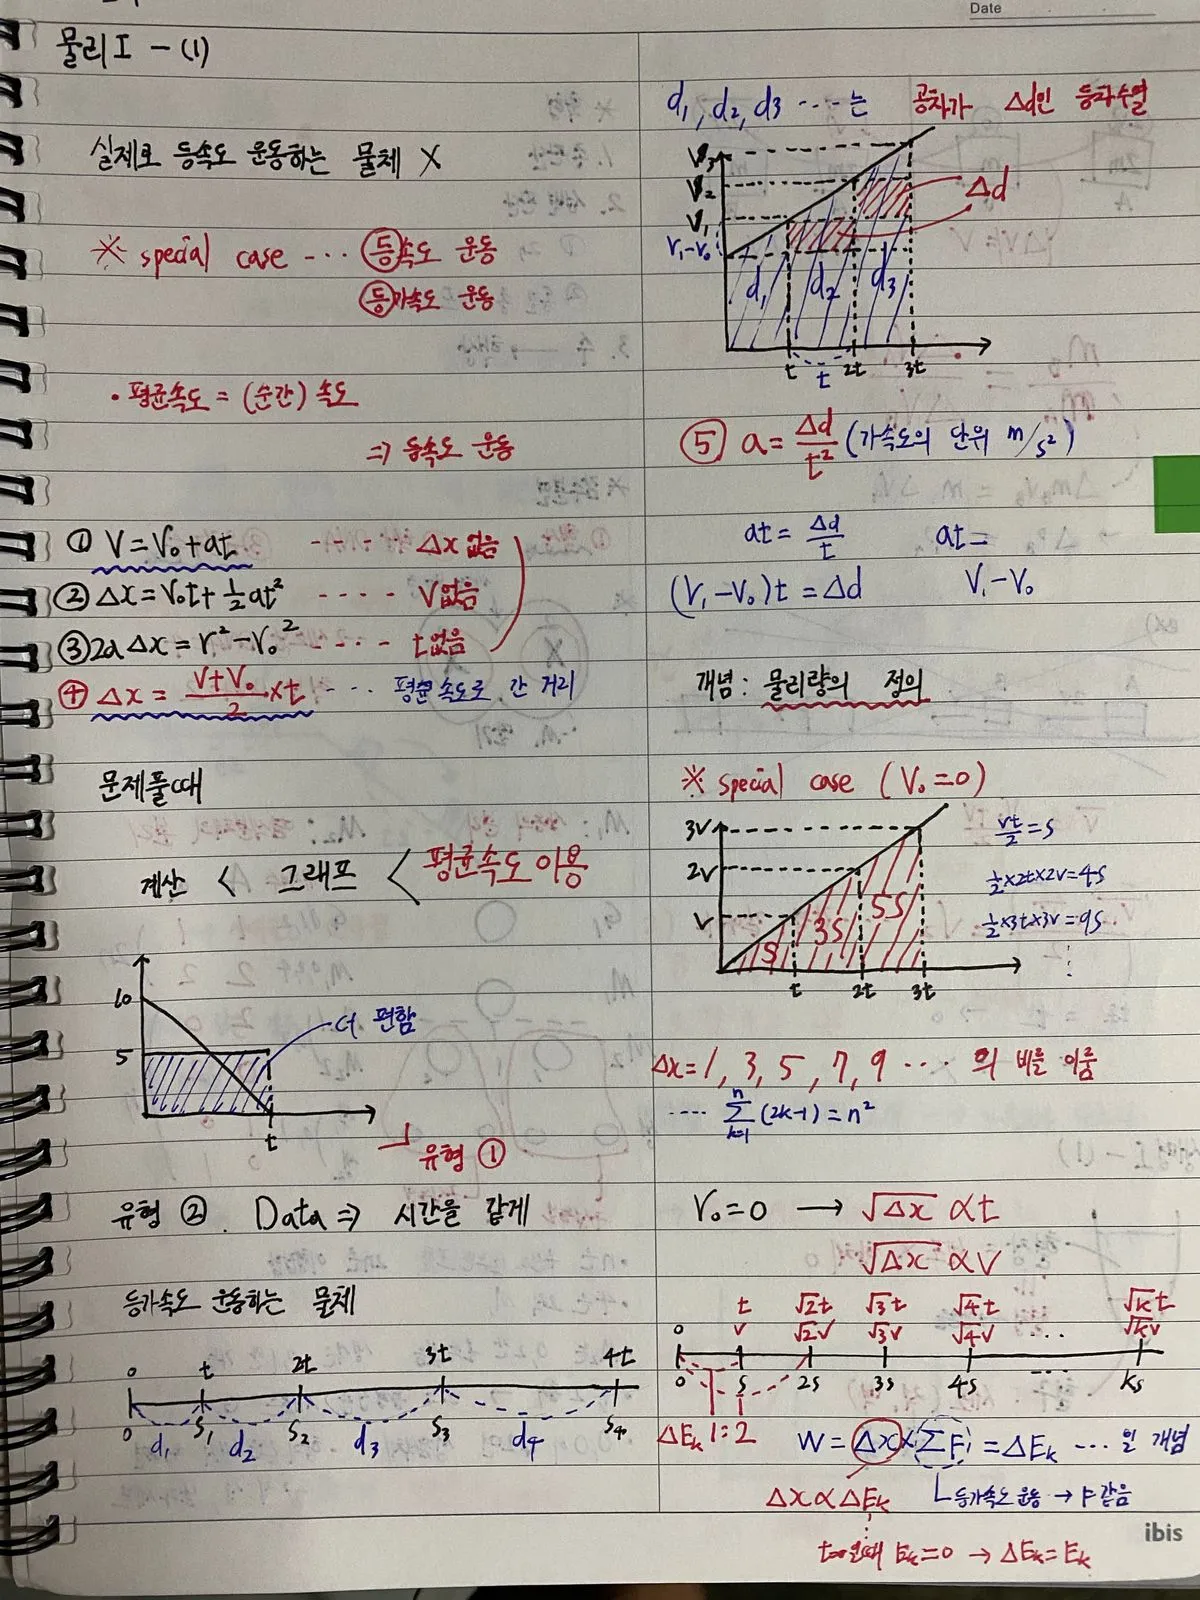 Date
물리 I - (1)
실제로 등속도 운동하는 물체 X
※ special case ··· 등속도 운동
등가속도 운동
• 평균속도 = (순간) 속도
⇒ 등속도 운동
① V=V₀+at ---- Δx없음
② Δx=V₀t+½at² ---- V없음
③ 2aΔx=V²-V₀² ---- t없음
④ Δx = (V+V₀)/2 × t ··· 평균속도로 간 거리
문제풀때
계산 < 그래프 < 평균속도 이용
10
5
더 편함
t
유형 ①
유형 ②. Data ⇒ 시간을 같게
등가속도 운동하는 물체
0 t 2t 3t 4t
0 S₁ S₂ S₃ S₄
d₁ d₂ d₃ d₄
d₁, d₂, d₃ ···는 공차가 Δd인 등차수열
V₃
V₂
V₁
V₁-V₀
Δd
d₁ d₂ d₃
t 2t 3t
t
⑤ a = Δd/t² (가속도의 단위 m/s²)
at = Δd/t at =
(V₁-V₀)t = Δd V₁-V₀
개념: 물리량의 정의
※ special case (V₀=0)
3V
2V
V
S 3S 5S
t 2t 3t
vt/2 = S
½×2t×2V=4S
½×3t×3V=9S
⋮
Δx=1, 3, 5, 7, 9 ··· 의 비율 이룸
···· ∑ⁿₖ₌₁(2k-1)=n²
V₀=0 → √Δx ∝ t
√Δx ∝ V
t √2t √3t √4t √kt
0 V √2V √3V √4V ··· √kV
0 S 2S 3S 4S ···· kS
ΔEₖ 1:2
W = Δx × ΣF = ΔEₖ ··· 일 개념
Δx ∝ ΔEₖ
등가속도 운동 → F같음
t=0일때 Eₖ=0 → ΔEₖ=Eₖ
ibis